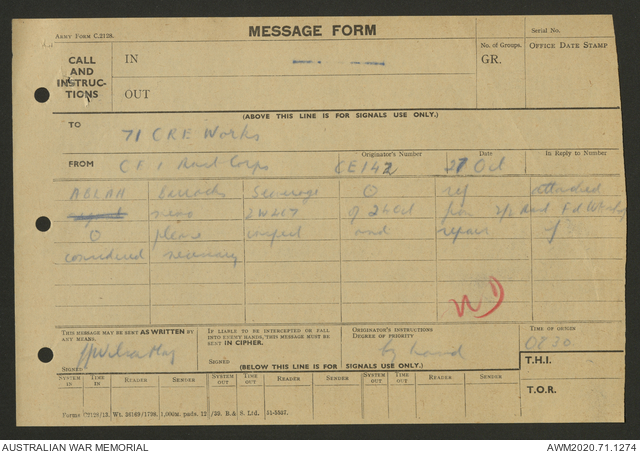 Army Form C.2128.
MESSAGE FORM
Serial No.
CALL AND INSTRUC-TIONS
IN
OUT
No. of Groups.
GR.
Office Date Stamp
(ABOVE THIS LINE IS FOR SIGNALS USE ONLY.)
TO
71 CRE Works
FROM
CE 1 Aust Corps
Originator's Number
CE142
Date
27 Oct
In Reply to Number
Barracks Sewerage O ref attached
memo 2W467 of 24 Oct from 2/2 Aust Fd
O please inspect and repair if
considered necessary
THIS MESSAGE MAY BE SENT AS WRITTEN BY ANY MEANS.
SIGNED
IF LIABLE TO BE INTERCEPTED OR FALL INTO ENEMY HANDS, THIS MESSAGE MUST BE SENT IN CIPHER.
SIGNED
ORIGINATOR'S INSTRUCTIONS
DEGREE OF PRIORITY
by hand
TIME OF ORIGIN
0830
T.H.I.
T.O.R.
(BELOW THIS LINE IS FOR SIGNALS USE ONLY.)
SYSTEM IN
TIME IN
READER
SENDER
SYSTEM OUT
TIME OUT
READER
SENDER
SYSTEM OUT
TIME OUT
READER
SENDER
AUSTRALIAN WAR MEMORIAL
AWM2020.71.1274